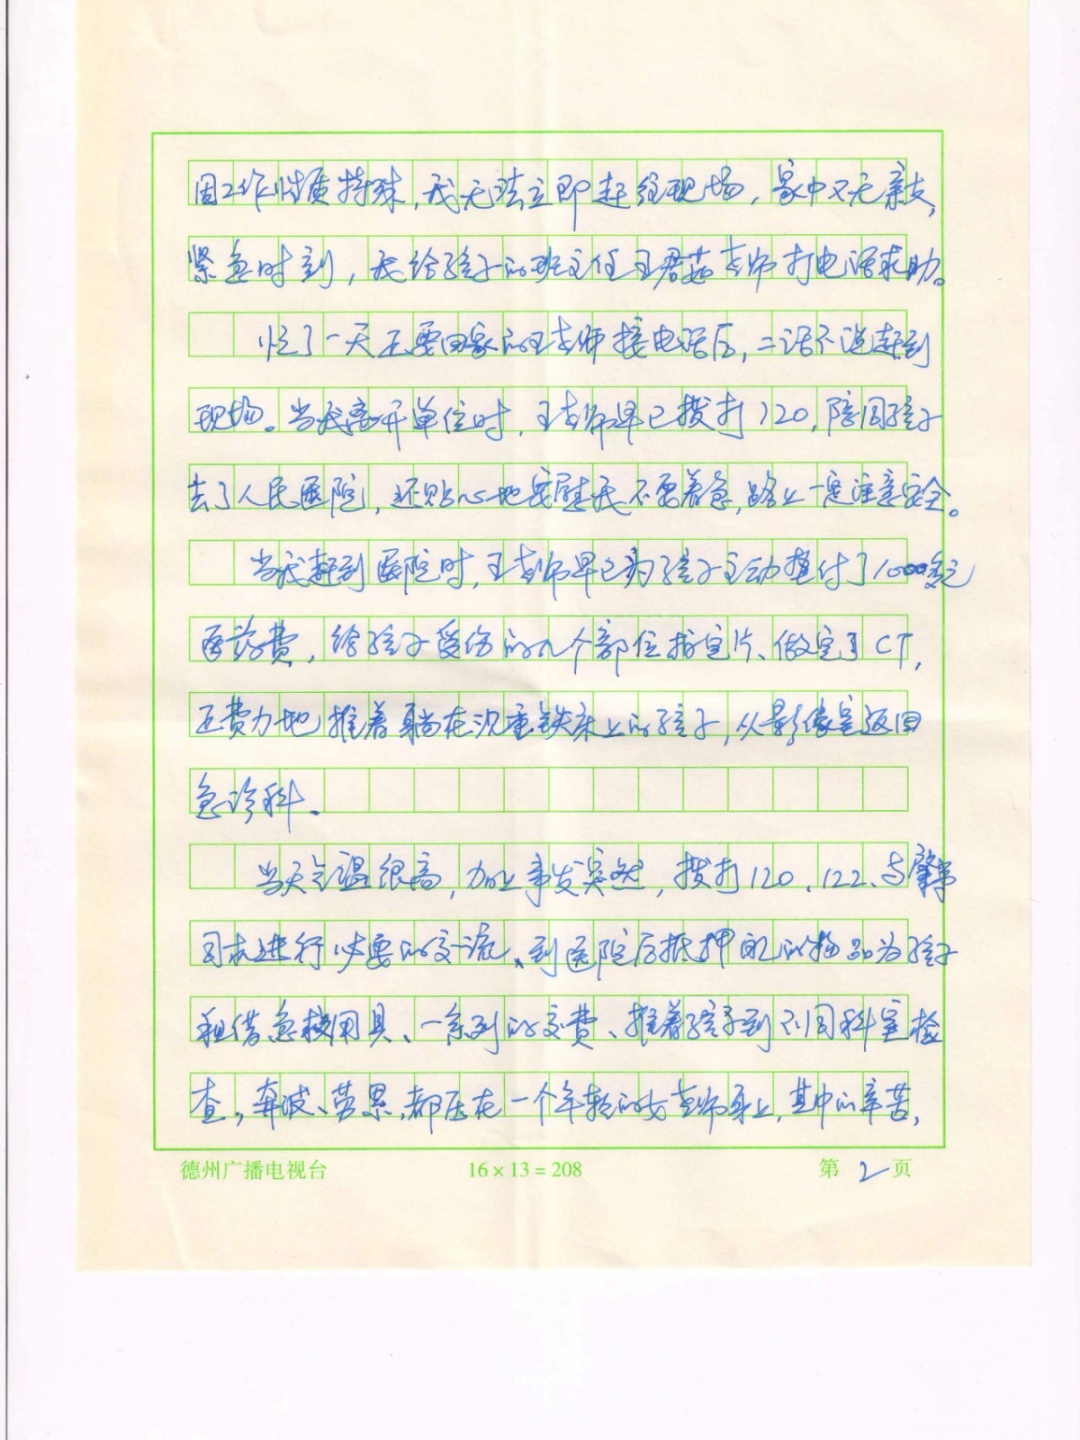 因工作性质特殊,我无法立即赶往现场,家中又无亲友,
紧急时刻,我给孩子的班主任王君茹老师打电话求助。
忙了一天正要回家的王老师接电话后,二话不说赶到
现场。当我离开单位时,王老师早已拨打120,陪同孩子
去了人民医院,还贴心地安慰我不要着急,路上一定注意安全。
当我赶到医院时,王老师早已为孩子主动垫付了1000多元
医药费,给孩子受伤的几个部位拍完片、做完了CT,
正费力地推着躺在沉重铁床上的孩子,从影像室返回
急诊科。
当天气温很高,加上事发突然,拨打120、122、与肇事
司机进行必要的交流、到医院后抵押自己的物品为孩子
租借急救用具、一系列的交费、推着孩子到不同科室检
查,奔波、劳累,都压在一个年轻的女老师身上,其中的辛苦,
德州广播电视台 16×13=208 第2页